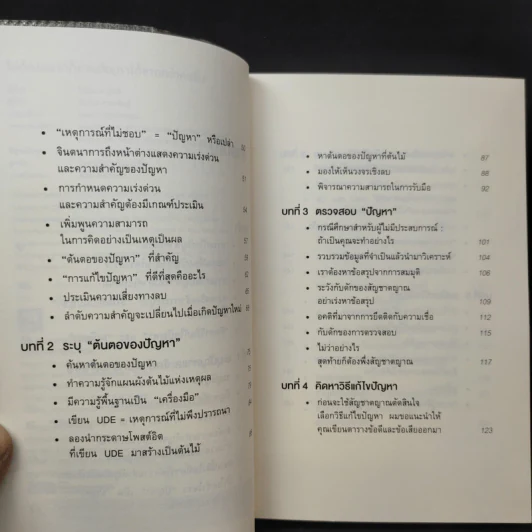 • "เหตุการณ์ที่ไม่ชอบ" = "ปัญหา" หรือเปล่า
• จินตนาการถึงหน้าต่างแสดงความเร่งด่วน
และความสำคัญของปัญหา
• การกำหนดความเร่งด่วน
และความสำคัญต้องมีเกณฑ์ประเมิน
• เพิ่มพูนความสามารถ
ในการคิดอย่างเป็นเหตุเป็นผล
• "ต้นตอของปัญหา" ที่สำคัญ
• "การแก้ไขปัญหา" ที่ดีที่สุดคืออะไร
• ประเมินความเสี่ยงทางลบ
• ลำดับความสำคัญจะเปลี่ยนไปเมื่อเกิดปัญหาใหม่
บทที่ 2 ระบุ "ต้นตอของปัญหา"
• ค้นหาต้นตอของปัญหา
• ทำความรู้จักแผนผังต้นไม้แห่งเหตุผล
• มีความรู้พื้นฐานเป็น "เครื่องมือ"
• เขียน UDE = เหตุการณ์ที่ไม่พึงปรารถนา
• ลองนำกระดาษโพสต์อิต
ที่เขียน UDE มาสร้างเป็นต้นไม้
• หาต้นตอของปัญหาที่ต้นไม้ 87
• มองให้เห็นวงจรเชิงลบ 88
• พิจารณาความสามารถในการรับมือ 92
บทที่ 3 ตรวจสอบ "ปัญหา"
• กรณีศึกษาสำหรับผู้ไม่มีประสบการณ์ :
ถ้าเป็นคุณจะทำอย่างไร 101
• รวบรวมข้อมูลที่จำเป็นแล้วนำมาวิเคราะห์ 104
• เราต้องหาข้อสรุปจากการสมมุติ 106
• ระวังกับดักของสัญชาตญาณ
อย่าเร่งหาข้อสรุป 109
• อคติที่มาจากการยึดติดกับความเชื่อ 112
• กับดักของการตรวจสอบ 115
• ไม่ว่าอย่างไร
สุดท้ายก็ต้องพึ่งสัญชาตญาณ 117
บทที่ 4 คิดหาวิธีแก้ไขปัญหา
• ก่อนจะใช้สัญชาตญาณตัดสินใจ
เลือกวิธีแก้ไขปัญหา ผมขอแนะนำให้
คุณเขียนตารางข้อดีและข้อเสียออกมา 123